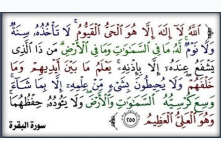 ٱللَّهُ لَآ إِلَٰهَ إِلَّا هُوَ ٱلْحَىُّ ٱلْقَيُّومُ ۚ لَا تَأْخُذُهُۥ سِنَةٌ
وَلَا نَوْمٌ ۚ لَّهُۥ مَا فِى ٱلسَّمَٰوَٰتِ وَمَا فِى ٱلْأَرْضِ ۗ مَن ذَا ٱلَّذِى
يَشْفَعُ عِندَهُۥٓ إِلَّا بِإِذْنِهِۦ ۚ يَعْلَمُ مَا بَيْنَ أَيْدِيهِمْ وَمَا
خَلْفَهُمْ ۖ وَلَا يُحِيطُونَ بِشَىْءٍ مِّنْ عِلْمِهِۦٓ إِلَّا بِمَا شَآءَ ۚ
وَسِعَ كُرْسِيُّهُ ٱلسَّمَٰوَٰتِ وَٱلْأَرْضَ ۖ وَلَا يَـُٔودُهُۥ حِفْظُهُمَا ۚ
وَهُوَ ٱلْعَلِىُّ ٱلْعَظِيمُ ٢٥٥
سورة البقرة